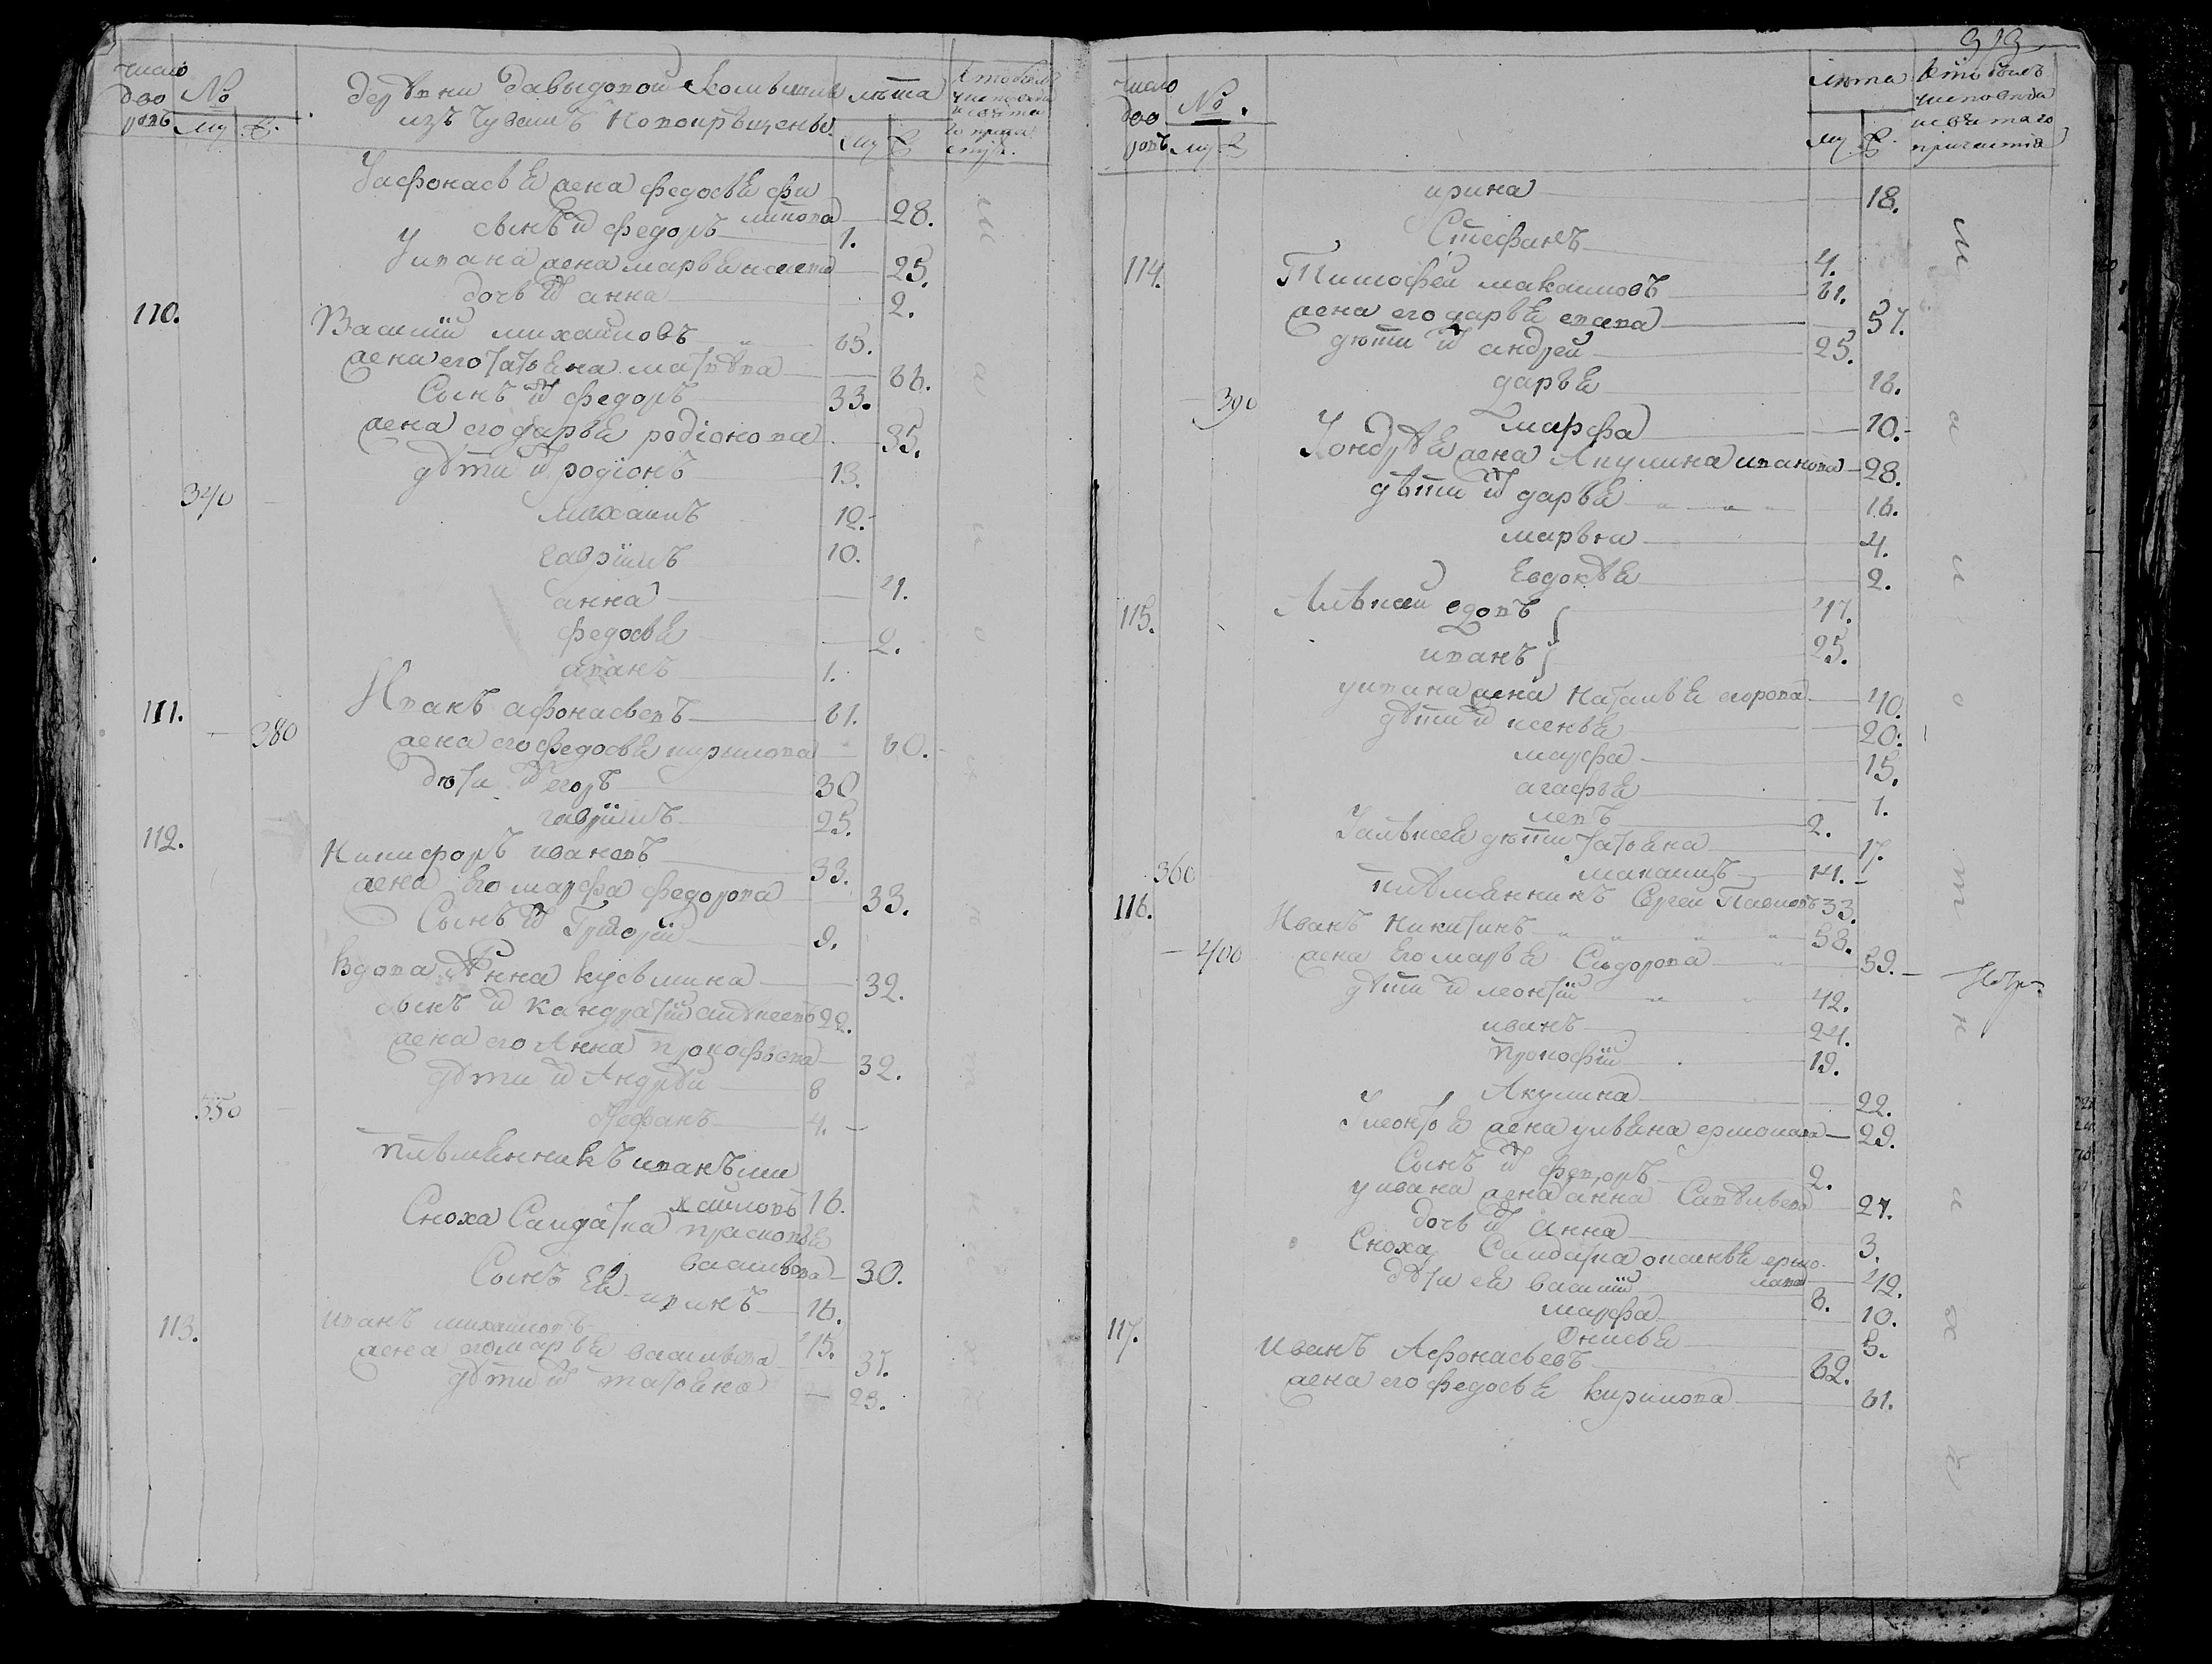 число дво ровъ
№
му. ж.
деревни давыдовой
изъ Чувашъ Новокрещены
лѣта
му ж
кто былъ у исповеди и святаго прича
Уафонасья жена федосья фи
липова 28.
сынъ и федоръ 1.
У ивана жена марья 25.
дочь и анна 2.
110.
Василий михайловъ 65.
жена его татьяна матвѣва 66.
Сынъ и федоръ 33.
жена его дарья родіонова 35.
дѣти и родіонъ 13.
340
михаилъ 12.
гаврiилъ 10.
анна 4.
федосья 2.
иванъ 1.
111.
Иванъ афонасьевъ 61.
380
жена его федосья кирилова 60.
дѣти и егоръ 30
гаврiилъ 25.
112.
Никифоръ ивановъ 33.
жена Его марфа федорова 33.
Сынъ и Григорiй 9.
Вдова Анна кузьмина 32.
сынъ и кандратiй алѣксеевъ 22.
жена его Анна прокофьева 32.
дѣти и Андрѣй 8
350
Стефанъ 4.
плѣмянникъ иванъ ми
хайловъ 16.
Сноха Салдатка прасковья
васильева 30.
Сынъ Ея иванъ 16.
113.
иванъ михаиловъ 45.
жена его марья васильева 37.
дѣти и татьяна 23.
число дво ровъ
№.
му ж
лѣта
му. ж.
кто былъ у исповеди и святаго причастiя
313
ирина 18.
Стефанъ 4.
114.
Тимофей максимовъ 61.
жена его дарья 57.
дѣти и андрей 25.
дарья 16.
390
марфа 10.
Уондрѣя жена Акулина иванова 28.
дѣти и дарья 16.
марья 4.
Евдокѣя 2.
115.
Алѣксей 47.
иванъ 25.
у ивана жена наталья егорова 40.
дѣти и ксенья 20.
марфа 15.
агафья 1.
левъ 2.
Уалѣксея дѣти татьяна 17.
360
14.
плѣмянникъ Сергей Павловъ 33.
116.
Иванъ Никитинъ 58.
400
жена Его марья Сидорова 59.
дѣти и леонтiй 42.
иванъ 24.
прокофiй 19.
Акулина 22.
Улеонтья жена ульяна ермолаева 29.
Сынъ и федоръ 2.
у ивана жена анна Савѣльева 27.
дочь и Анна 3.
Сноха Салдатка ермо
лаева 42.
дѣти ея василiй 8.
марфа 10.
Онисья 5.
117.
Иванъ Афонасьевъ 62.
жена его федосья кирилова 61.